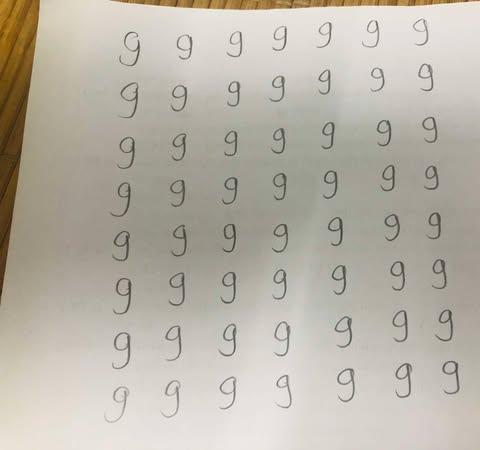 9 9 9 9 9 9 9
9 9 9 9 9 9 9
9 9 9 9 9 9 9
9 9 9 9 9 9 9
9 9 9 9 9 9 9
9 9 9 9 9 9 9
9 9 9 9 9 9 9
9 9 9 9 9 9 9